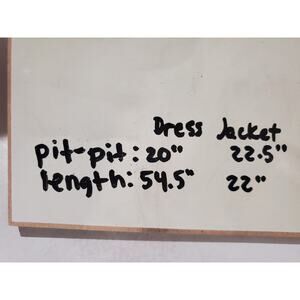 Dress Jacket
pit-pit: 20" 22.5"
length: 54.5" 22"